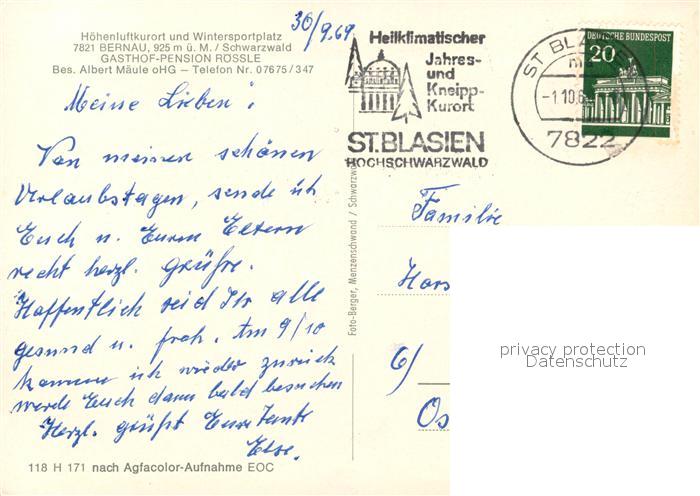 Höhenluftkurort und Wintersportplatz
7821 BERNAU, 925 m ü. M. / Schwarzwald
GASTHOF-PENSION RÖSSLE
Bes. Albert Mäule oHG – Telefon Nr. 07675/347
30/9.69
Meine Lieben!
Von meinen schönen
Urlaubstagen, sende ich
Euch u. Euren Eltern
recht herzl. Grüße.
Hoffentlich seid Ihr alle
gesund u. froh. Am 9/10
komme ich wieder zurück
werde Euch dann bald besuchen
Herzl. grüßt Eure Tante
Else.
118 H 171 nach Agfacolor-Aufnahme EOC
Foto-Berger, Menzenschwand / Schwarzw
Heilklimatischer
Jahres-
und
Kneipp-
Kurort
ST.BLASIEN
HOCHSCHWARZWALD
ST BLA
-1.10.6
7822
DEUTSCHE BUNDESPOST
20
Familie
Hors
6/
Os
privacy protection
Datenschutz